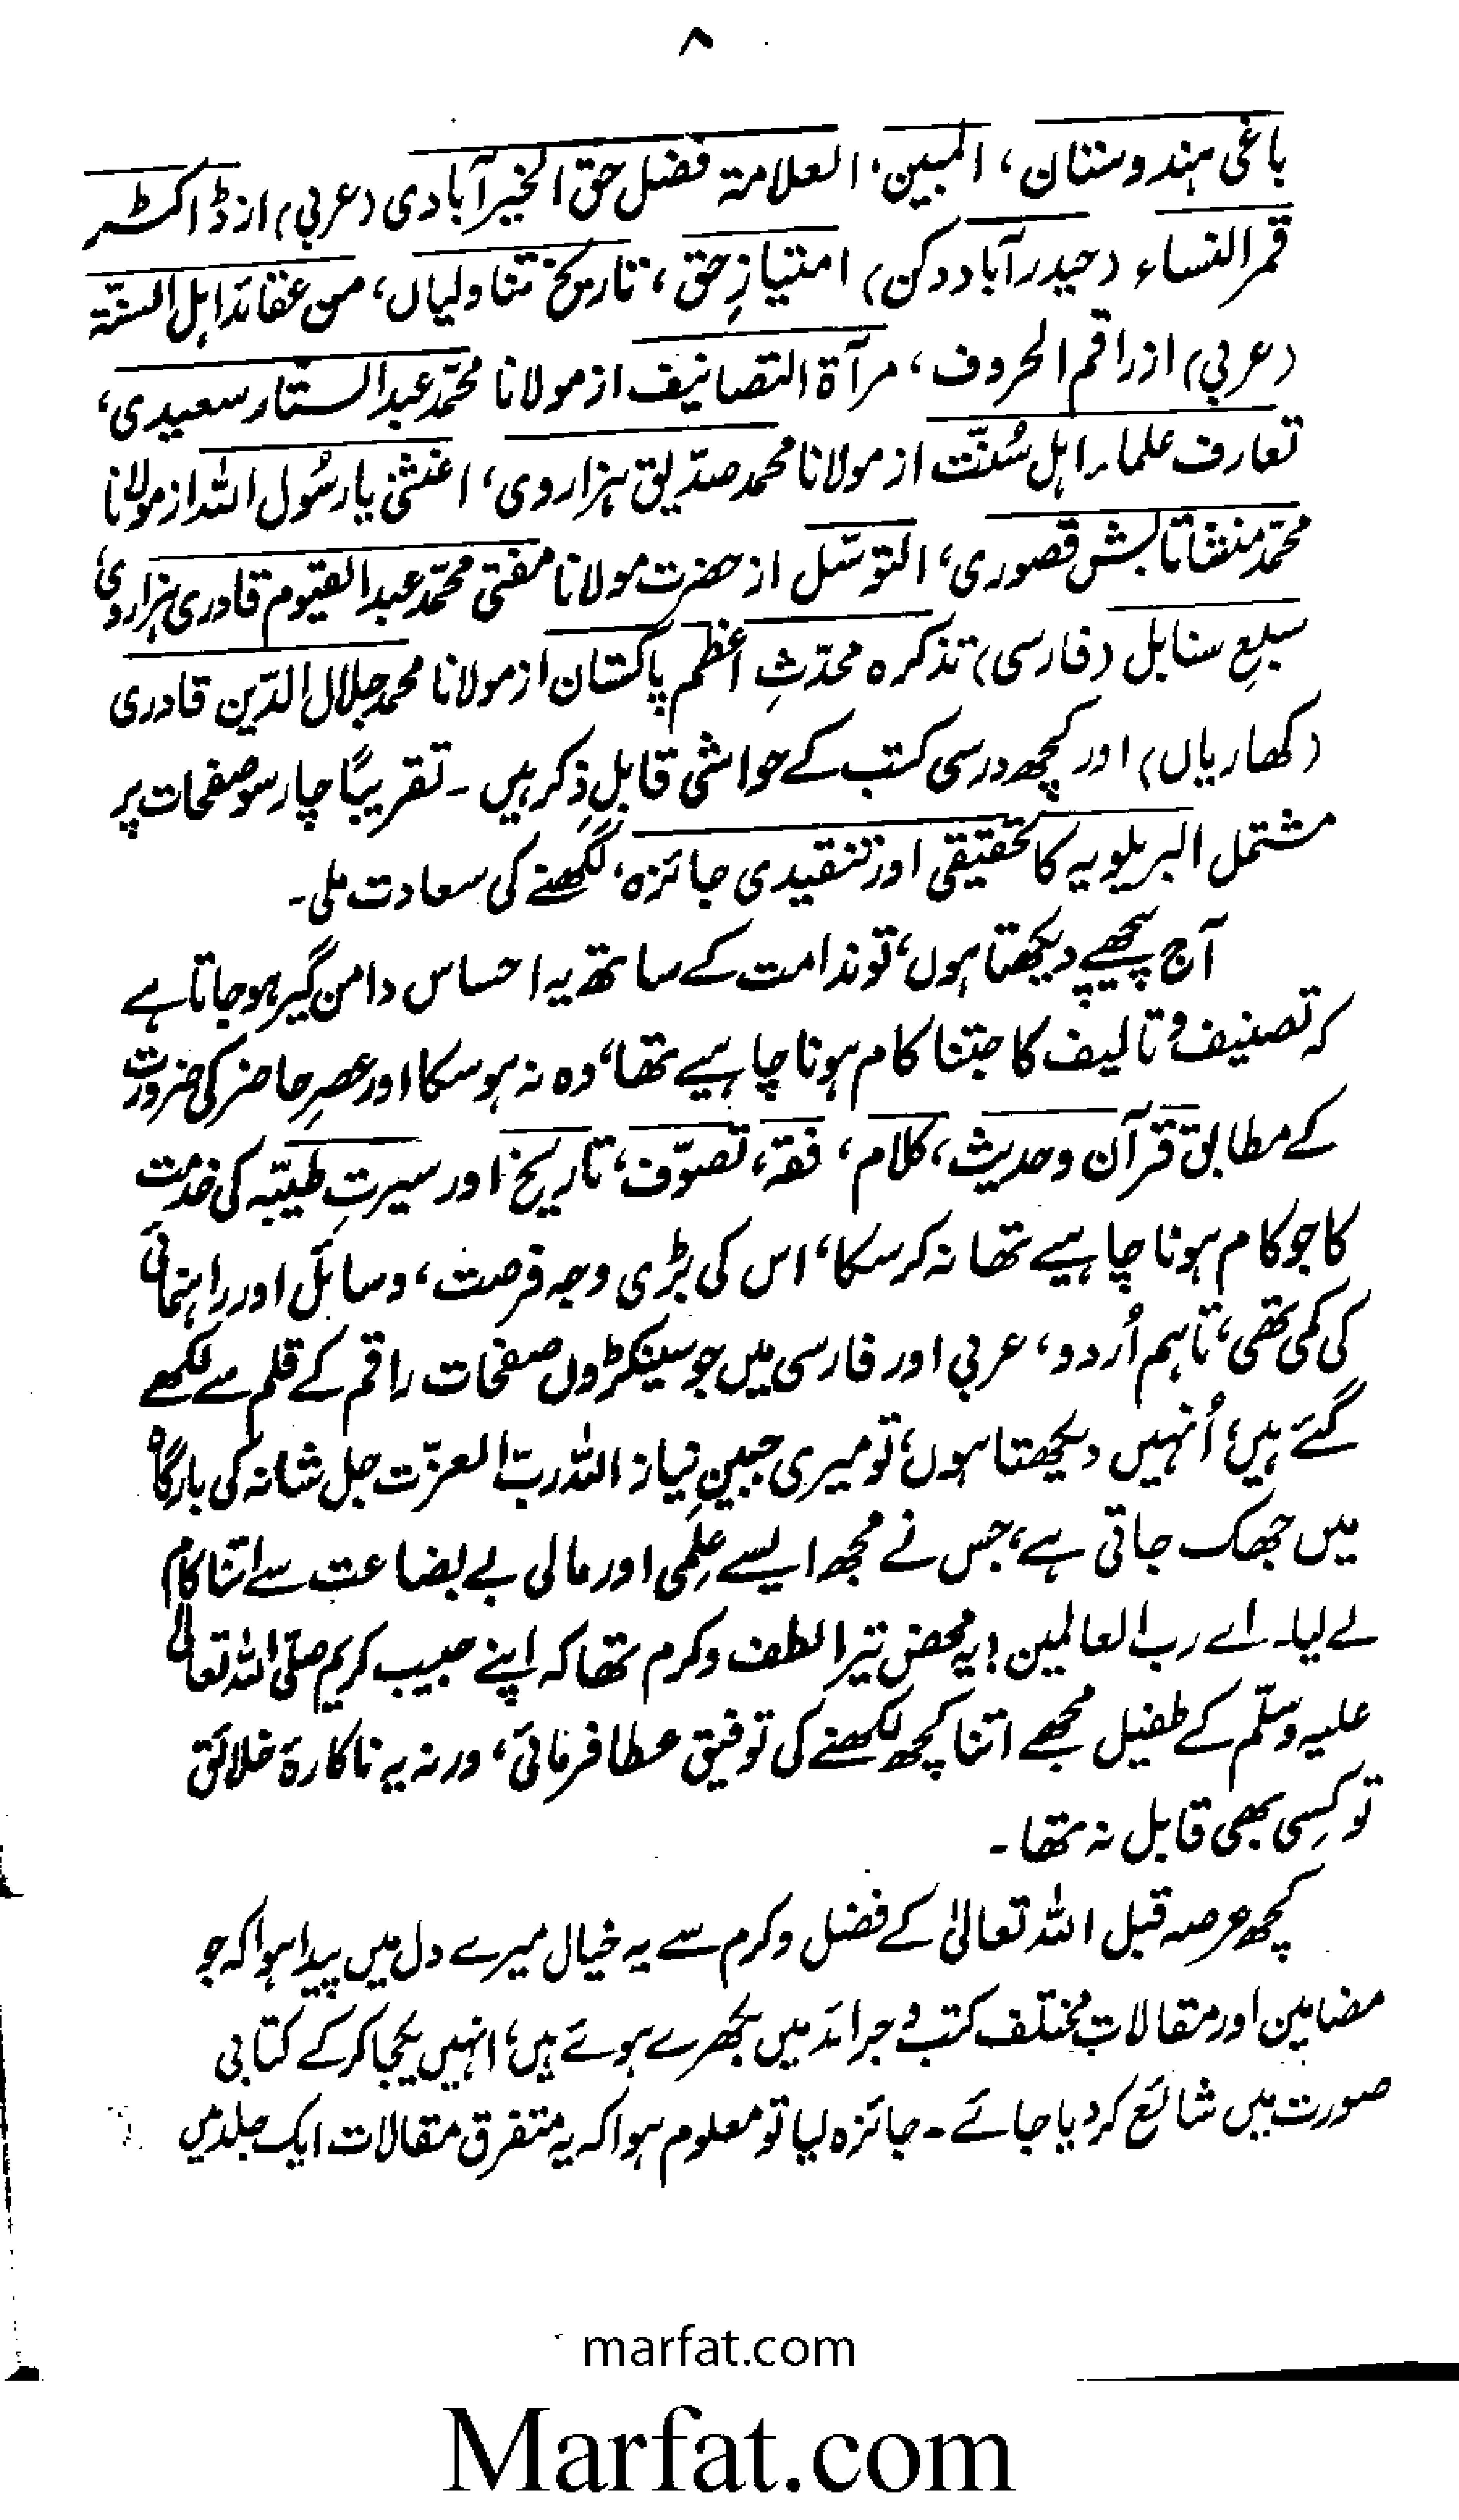 ۸
باغی ہندوستان، المبین، العلامۃ فضل حق الخیرآبادی (عربی) از ڈاکٹر
قمر النساء (حیدرآباد دکن) امتیازِ حق، تاریخ تناولیاں، من عقائد اہل السنّۃ
(عربی) از راقم الحروف، مرآۃ التصانیف از مولانا محمّد عبد الستار سعیدی،
تعارف علماء اہل سُنّت از مولانا محمد صدّیق ہزاروی، اغثنی یا رسُول اللہ از مولانا
محمّد منشا تابش قصوری، التوسّل از حضرت مولانا مفتی محمّد عبد القیوم قادری ہزاروی،
سبعِ سنابل (فارسی) تذکرہ محدّثِ اعظم پاکستان از مولانا محمد جلال الدّین قادری
(کھاریاں) اور کچھ درسی کتب کے حواشی قابلِ ذکر ہیں ۔ تقریباً چار سو صفحات پر
مشتمل البریلویہ کا تحقیقی اور تنقیدی جائزہ، لکھنے کی سعادت ملی ۔
آج پیچھے دیکھتا ہوں، تو ندامت کے ساتھ یہ احساس دامن گیر ہو جاتا ہے
کہ تصنیف و تالیف کا جتنا کام ہونا چاہیے تھا، وہ نہ ہو سکا اور عصرِ حاضر کی ضرورت
کے مطابق قرآن و حدیث، کلام، فقہ، تصوّف، تاریخ اور سیرتِ طیّبہ کی خدمت
کا جو کام ہونا چاہیے تھا نہ کر سکا، اس کی بڑی وجہ فرصت، وسائل اور راہنمائی
کی کمی تھی، تاہم اُردو، عربی اور فارسی میں جو سینکڑوں صفحات راقم کے قلم سے لکھے
گئے ہیں، اُنہیں دیکھتا ہوں، تو میری جبینِ نیاز اللہ ربّ العزّت جل شانہ کی بارگاہ
میں جھک جاتی ہے، جس نے مجھ ایسے عِلمی اور مالی بے بضاعت سے اتنا کام
لے لیا۔ اے رب العالمین! یہ محض تیرا لطف و کرم تھا کہ اپنے حبیب کریم صلّی اللہ تعالیٰ
علیہ وسلّم کے طفیل مجھے اتنا کچھ لکھنے کی توفیق عطا فرمائی، ورنہ یہ ناکارۂ خلائق
تو کسِی بھی قابل نہ تھا ۔
کچھ عرصہ قبل اللہ تعالیٰ کے فضل و کرم سے یہ خیال میرے دل میں پیدا ہوا کہ جو
مضامین اور مقالات مختلف کتب و جرائد میں بکھرے ہوئے ہیں، انہیں یکجا کر کے کتابی
صورت میں شائع کر دیا جائے ۔ جائزہ لیا تو معلوم ہوا کہ یہ متفرق مقالات ایک جلد میں
marfat.com
Marfat.com